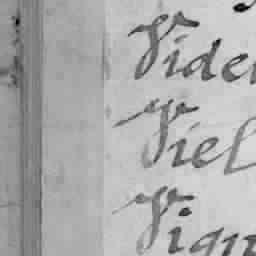 Vide
Viel
Vign